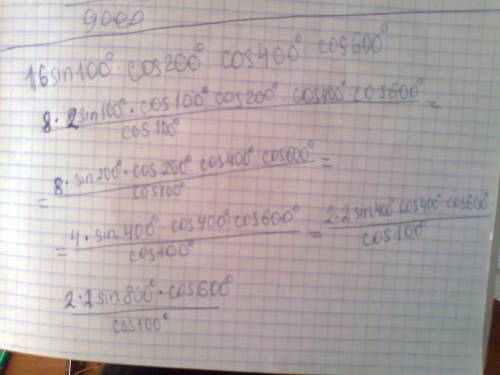 9000
16sin100° cos200° cos400° cos600°
8·2sin100°·cos100° cos200°·cos400° cos600° / cos100° =
= 8·sin200°·cos200° cos400° cos600° / cos100° =
= 4·sin400° cos400° cos600° / cos100° = 2·2sin400° cos400°·cos600° / cos100°
2·2sin800°·cos600° / cos100°